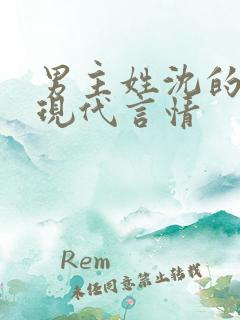 男主姓沈的
現代言情
Rem
未任同意禁止转载